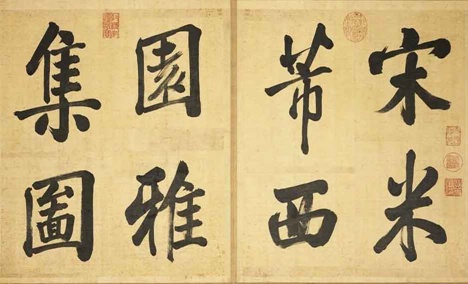 宋米
芾西
園雅
集圖